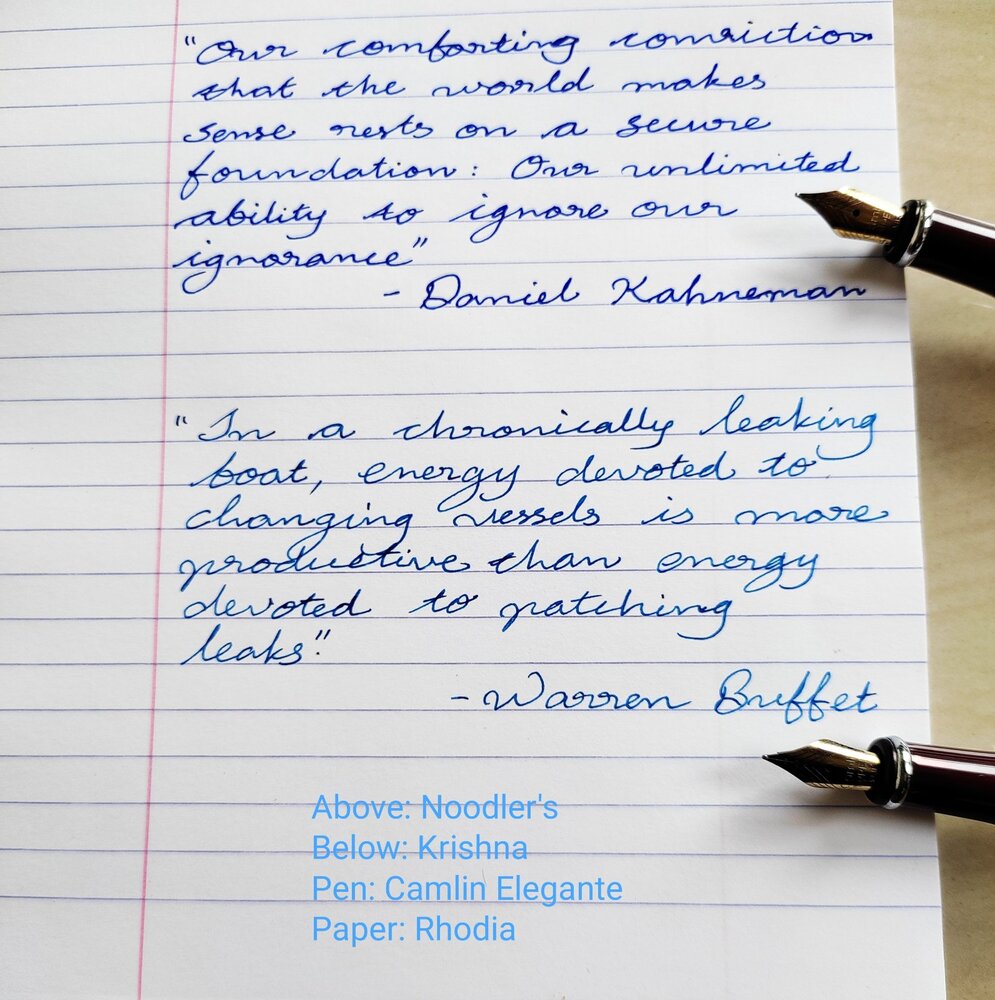 "Our comforting conviction
that the world makes
sense rests on a secure
foundation: Our unlimited
ability to ignore our
ignorance"
- Daniel Kahneman
"In a chronically leaking
boat, energy devoted to
changing vessels is more
productive than energy
devoted to patching
leaks."
- Warren Buffet
Above: Noodler's
Below: Krishna
Pen: Camlin Elegante
Paper: Rhodia